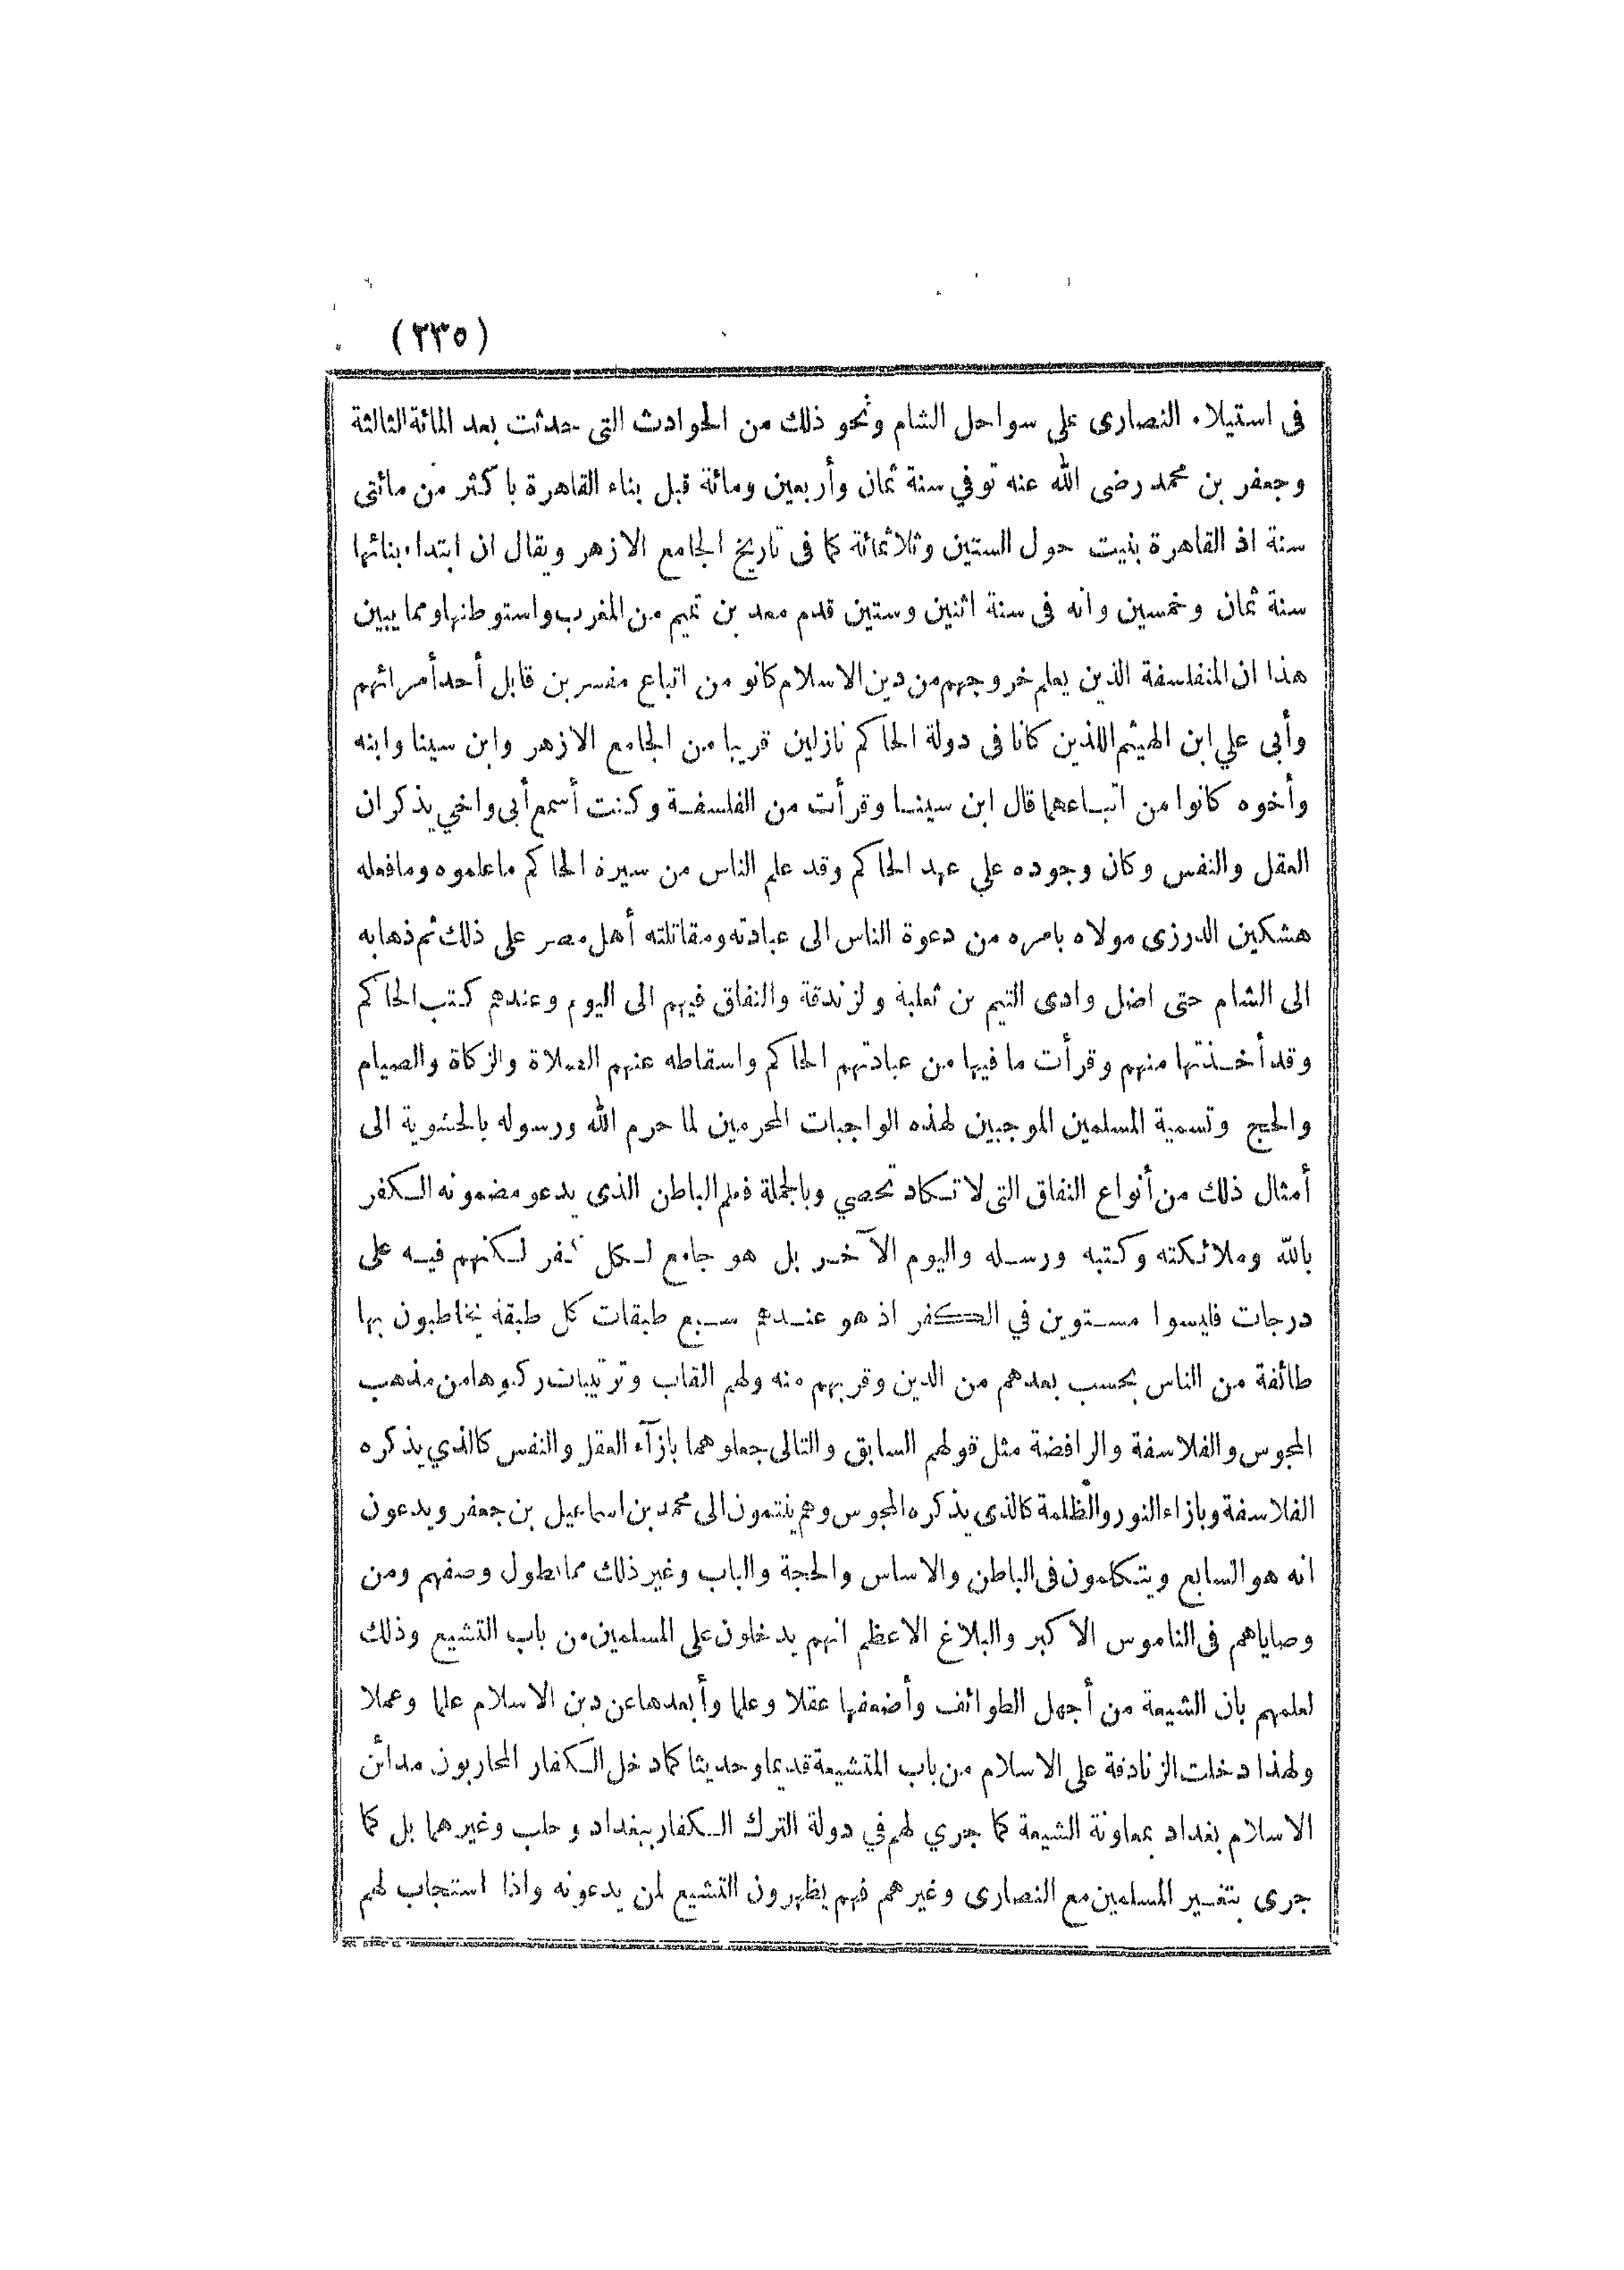 (٣٣٥)
فى استيلاء النصارى على سواحل الشام ونحو ذلك من الحوادث التى حدثت بعد المائة الثالثة
وجعفر بن محمد رضى الله عنه توفي سنة ثمان وأربعين ومائة قبل بناء القاهرة باكثر من مائتى
سنة اذ القاهرة بنيت حول الستين وثلاثمائة كما فى تاريخ الجامع الازهر ويقال ان ابتداء بنائها
سنة ثمان وخمسين وانه فى سنة اثنين وستين قدم معد بن تميم من المغرب واستوطنها ومما يبين
هذا ان المتفلسفة الذين يعلم خروجهم من دين الاسلام كانو من اتباع مفسر بن قابل أحد أمرائهم
وأبى علي ابن الهيثم اللذين كانا فى دولة الحاكم نازلين قريبا من الجامع الازهر وابن سينا وابنه
وأخوه كانوا من اتباعهما قال ابن سينا وقرأت من الفلسفة وكنت أسمع أبى واخي يذكران
العقل والنفس وكان وجوده علي عهد الحاكم وقد علم الناس من سيرة الحاكم ماعلموه ومافعله
هشكين الدرزى مولاه بامره من دعوة الناس الى عبادته ومقاتلته أهل مصر على ذلك ثم ذهابه
الى الشام حتى اضل وادى التيم بن ثعلبة ولزندقة والنفاق فيهم الى اليوم وعندهم كتب الحاكم
وقد أخذتها منهم وقرأت ما فيها من عبادتهم الحاكم واسقاطه عنهم الصلاة والزكاة والصيام
والحج وتسمية المسلمين الموجبين لهذه الواجبات المحرمين لما حرم الله ورسوله بالحشوية الى
أمثال ذلك من أنواع النفاق التى لا تكاد تحصي وبالجملة فعلم الباطن الذى يدعو مضمونه الكفر
بالله وملائكته وكتبه ورسله واليوم الآخر بل هو جامع لكل كفر لكنهم فيه على
درجات فليسوا مستوين في الكفر اذ هو عندهم سبع طبقات كل طبقة يخاطبون بها
طائفة من الناس بحسب بعدهم من الدين وقربهم منه ولهم القاب وترتيبات ركبوها من مذهب
المجوس والفلاسفة والرافضة مثل قولهم السابق والتالى جعلوهما بازآء العقل والنفس كالذي يذكره
الفلاسفة وبازاء النور والظلمة كالذى يذكره المجوس وهم ينتمون الى محمد بن اسماعيل بن جعفر ويدعون
انه هو السابع ويتكلمون فى الباطن والاساس والحجة والباب وغير ذلك مما يطول وصفهم ومن
وصاياهم فى الناموس الاكبر والبلاغ الاعظم انهم يدخلون على المسلمين من باب التشيع وذلك
لعلمهم بان الشيعة من أجهل الطوائف وأضعفها عقلا وعلما وأبعدها عن دين الاسلام علما وعملا
ولهذا دخلت الزنادقة على الاسلام من باب المتشيعة قديما وحديثا كما دخل الكفار المحاربون مدائن
الاسلام بغداد بمعاونة الشيعة كما جري لهم في دولة الترك الكفار ببغداد وحلب وغيرهما بل كما
جرى بتغير المسلمين مع النصارى وغيرهم فهم يظهرون التشيع لمن يدعونه واذا استجاب لهم